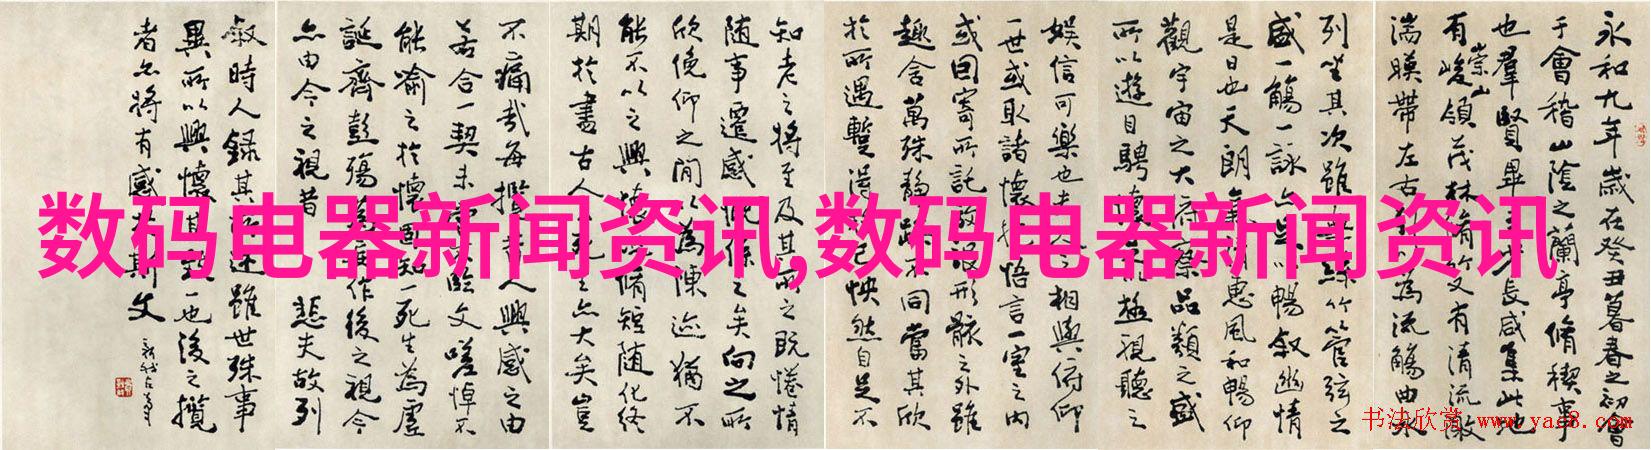 永和九年歲在癸丑暮春之初會
于會稽山陰之蘭亭脩稧事
也羣賢畢至少長咸集此地
有崇山峻領茂林脩竹又有清流激
湍暎帶左右引以為流觴曲水
列坐其次雖無絲竹管弦之
盛一觴一詠亦足以暢敘幽情
是日也天朗氣清惠風和暢仰
觀宇宙之大俯察品類之盛
所以遊目騁懷足以極視聽之
娛信可樂也夫人之相與俯仰
一世或取諸懷抱悟言一室之內
或因寄所託放浪形骸之外雖
趣舍萬殊靜躁不同當其欣
於所遇暫得於己怏然自足不
知老之將至及其所之既惓情
隨事遷感慨係之矣向之所
欣俛仰之間以為陳迹猶不
能不以之興懷況脩短隨化終
期於盡古人云死生亦大矣豈
不痛哉每攬昔人興感之由
若合一契未嘗不臨文嗟悼不
能喻之於懷固知一死生為虛
誕齊彭殤為妄作後之視今
亦由今之視昔悲夫故列
敘時人錄其所述雖世殊事
異所以興懷其致一也後之攬
者亦將有感於斯文
数码电器新闻资讯,数码电器新闻资讯
书法欣赏 www.yac8.com